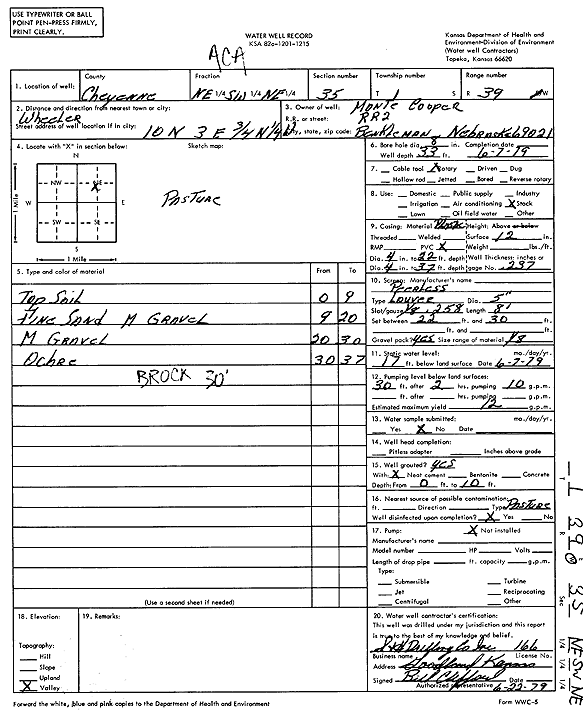 USE TYPEWRITER OR BALL
POINT PEN-PRESS FIRMLY,
PRINT CLEARLY.
WATER WELL RECORD
KSA 82a-1201-1215
Kansas Department of Health and
Environment-Division of Environment
(Water well Contractors)
Topeka, Kansas 66620
ACA
1. Location of well: County Cheyenne Fraction NE 1/4 SW 1/4 NE 1/4 Section number 35 Township number T 1 S Range number R 39 W
2. Distance and direction from nearest town or city:
Wheeler
Street address of well location if in city: 10 N 3 E 3/4 N 1/4 W
3. Owner of well: Monte Cooper
R.R. or street: RR2
City, state, zip code: Benkleman, Nebraska 69021
4. Locate with "X" in section below:
Sketch map:
N
NW NE
W E
SW SE
S
1 Mile
1 Mile
X
Pasture
5. Type and color of material From To
Top Soil 0 9
Fine Sand M Gravel 9 20
M Gravel 20 30
Ochre 30 37
BROCK 30'
(Use a second sheet if needed)
6. Bore hole dia. 8 in. Completion date
Well depth 33 ft. 6-7-79
7. Cable tool X Rotary Driven Dug
Hollow rod Jetted Bored Reverse rotary
8. Use: Domestic Public supply Industry
Irrigation Air conditioning X Stock
Lawn Oil field water Other
9. Casing: Material Plastic Height: Above or below
Threaded Welded Surface 12 in.
RMP PVC X Weight lbs./ft.
Dia. 4 in. to 22 ft. depth Wall Thickness: inches or
Dia. 4 in. to 37 ft. depth gage No. .237
10. Screen: Manufacturer's name
Peerless
Type Louvre Dia. 5"
Slot/gauze 1/8 .258 Length 8'
Set between 22 ft. and 30 ft.
ft. and ft.
Gravel pack? yes Size range of material 1/8
11. Static water level: mo./day/yr.
17 ft. below land surface Date 6-7-79
12. Pumping level below land surfaces:
30 ft. after 2 hrs. pumping 10 g.p.m.
ft. after hrs. pumping g.p.m.
Estimated maximum yield 12 g.p.m.
13. Water sample submitted: mo./day/yr.
Yes X No Date
14. Well head completion:
Pitless adapter Inches above grade
15. Well grouted? yes
With: X Neat cement Bentonite Concrete
Depth: From 0 ft. to 10 ft.
16. Nearest source of possible contamination:
ft. Direction Type Pasture
Well disinfected upon completion? X Yes No
17. Pump: X Not installed
Manufacturer's name
Model number HP Volts
Length of drop pipe ft. capacity g.p.m.
Type:
Submersible Turbine
Jet Reciprocating
Centrifugal Other
18. Elevation:
Topography:
Hill
Slope
Upland
X Valley
19. Remarks:
20. Water well contractor's certification:
This well was drilled under my jurisdiction and this report
is true to the best of my knowledge and belief.
Drilling Co Inc 166
Business name License No.
Address Goodland Kansas
Signed Bill Clifford 6-22-79
Authorized representative
T 1 R 39 W Sec 35 NE SW NE
1/4 1/4 1/4
Forward the white, blue and pink copies to the Department of Health and Environment
Form WWC-5